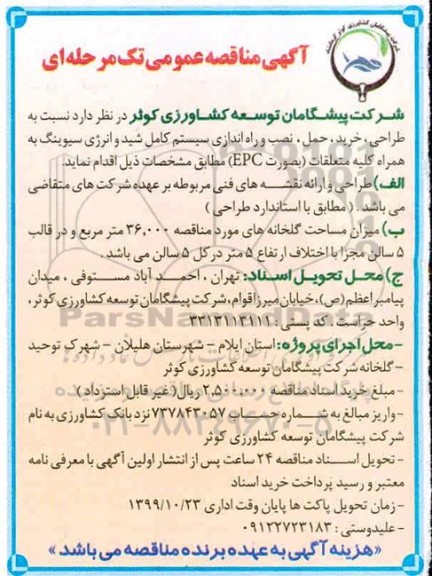 آگهی مناقصه عمومی تک مرحله ای
شرکت پیشگامان توسعه کشاورزی کوثر در نظر دارد نسبت به
طراحی ، خرید ، حمل ، نصب و راه اندازی سیستم کامل شید و انرژی سیوینگ به
همراه کلیه متعلقات (بصورت EPC) مطابق مشخصات ذیل اقدام نماید.
الف) طراحی و ارائه نقشه های فنی مربوطه بر عهده شرکت های متقاضی
می باشد . ( مطابق با استاندارد طراحی )
ب) میزان مساحت گلخانه های مورد مناقصه ۳۶,۰۰۰ متر مربع و در قالب
۵ سالن مجزا با اختلاف ارتفاع ۵ متر در کل ۵ سالن می باشد .
ج) محل تحویل اسناد: تهران ، احمد آباد مستوفی ، میدان
پیامبر اعظم(ص)، خیابان میرزا قوام، شرکت پیشگامان توسعه کشاورزی کوثر ،
واحد حراست . کد پستی : ۳۳۱۳۱۱۳۱۱۱
-محل اجرای پروژه: استان ایلام – شهرستان هلیلان – شهرک توحید
– گلخانه شرکت پیشگامان توسعه کشاورزی کوثر
- مبلغ خرید اسناد مناقصه ۲,۵۰۰,۰۰۰ ریال( غیر قابل استرداد )
- واریز مبالغ به شماره حساب ۷۳۷۸۴۳۰۵۷ نزد بانک کشاورزی به نام
شرکت پیشگامان توسعه کشاورزی کوثر
- تحویل اسناد مناقصه ۲۴ ساعت پس از انتشار اولین آگهی با معرفی نامه
معتبر و رسید پرداخت خرید اسناد
- زمان تحویل پاکت ها پایان وقت اداری ۱۳۹۹/۱۰/۲۳
- علیدوستی : ۰۹۱۲۲۷۲۳۱۸۳
«هزینه آگهی به عهده برنده مناقصه می باشد »
ParsNamadData
۰۲۱-۸۸۳۴۹۶۷۰-۵